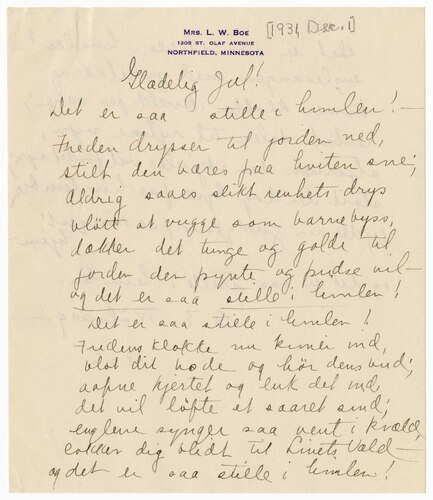 MRS. L. W. BOE
1308 ST. OLAF AVENUE
NORTHFIELD, MINNESOTA
[1931, Dec. 1]
Gladelig Jul!
Det er saa stille i himlen! —
Freden drysser til jorden ned,
stilt den bares paa hviten sne;
Aldrig saaes slikt renhets drys
bløtt at vugge som barnebyss,
dækker det tunge og golde til
jorden den pynte og pudse vil —
og det er saa stille i himlen!
Det er saa stille i himlen!
Fredens klokke nu kimer ind,
blot dit hode og hør dens bud;
aapne hjertet og luk det ind,
det vil løfte et saaret sind;
englene synger saa vent i kvæld,
lokker dig blidt til Livets Væld —
og det er saa stille i himlen!